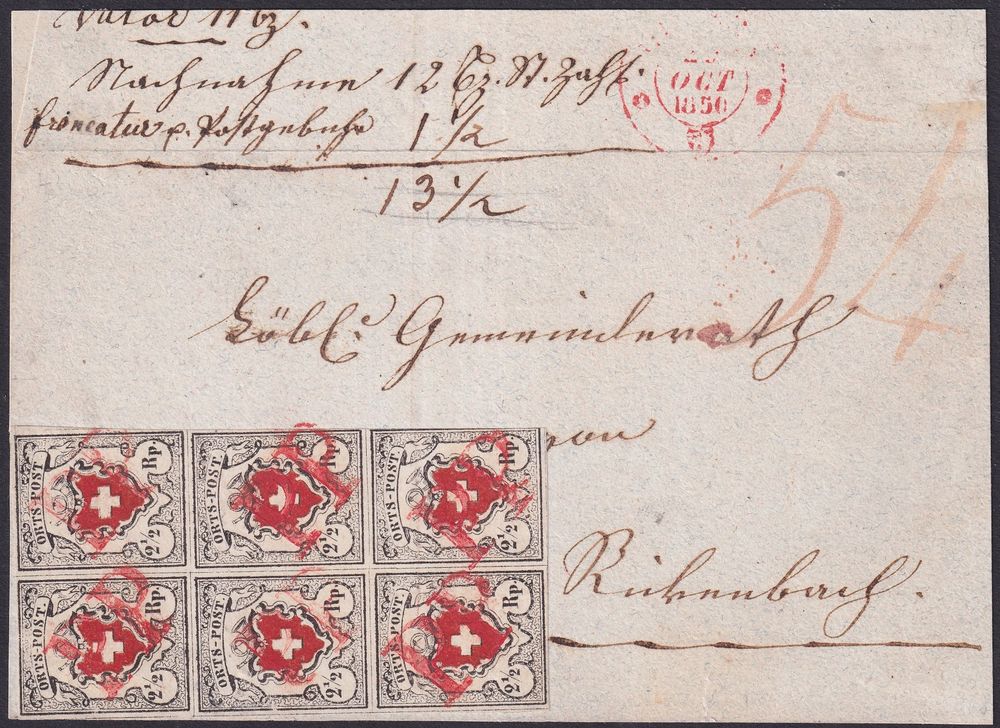 Nachnahme 12 Bz. St. Zahl.
francatur u. Postgebühr 1 1/2
13 1/2
OCT
1850
54
Löbl. Gemeinderath
von
Rickenbach.
ORTS-POST. 2 1/2 Rp.
ORTS-POST. 2 1/2 Rp.
ORTS-POST. 2 1/2 Rp.
ORTS-POST. 2 1/2 Rp.
ORTS-POST. 2 1/2 Rp.
ORTS-POST. 2 1/2 Rp.